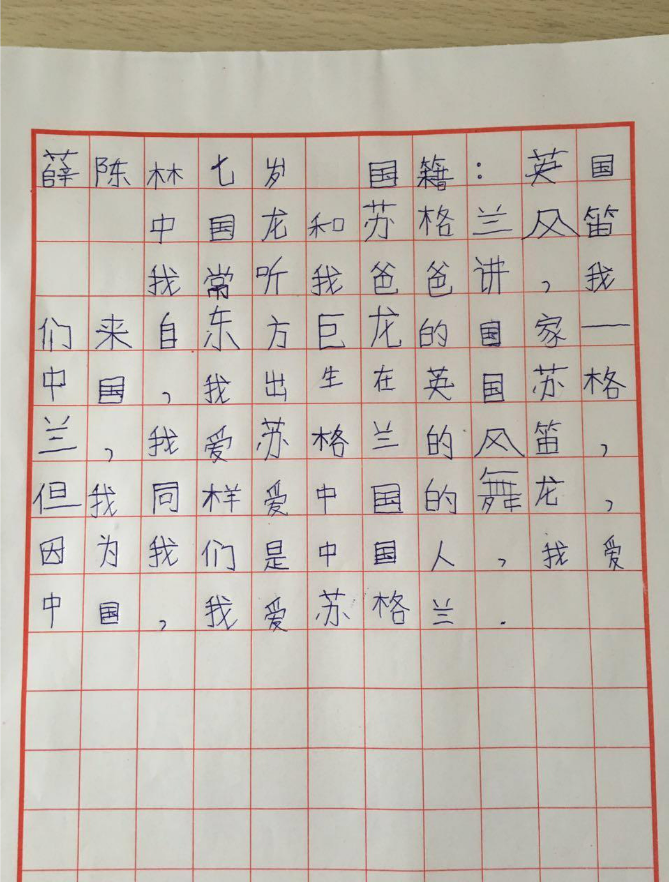 薛陈林七岁 国籍：英国
中国龙和苏格兰风笛
我常听我爸爸讲，我
们来自东方巨龙的国家一
中国，我出生在英国苏格
兰，我爱苏格兰的风笛，
但我同样爱中国的舞龙，
因为我们是中国人，我爱
中国，我爱苏格兰.